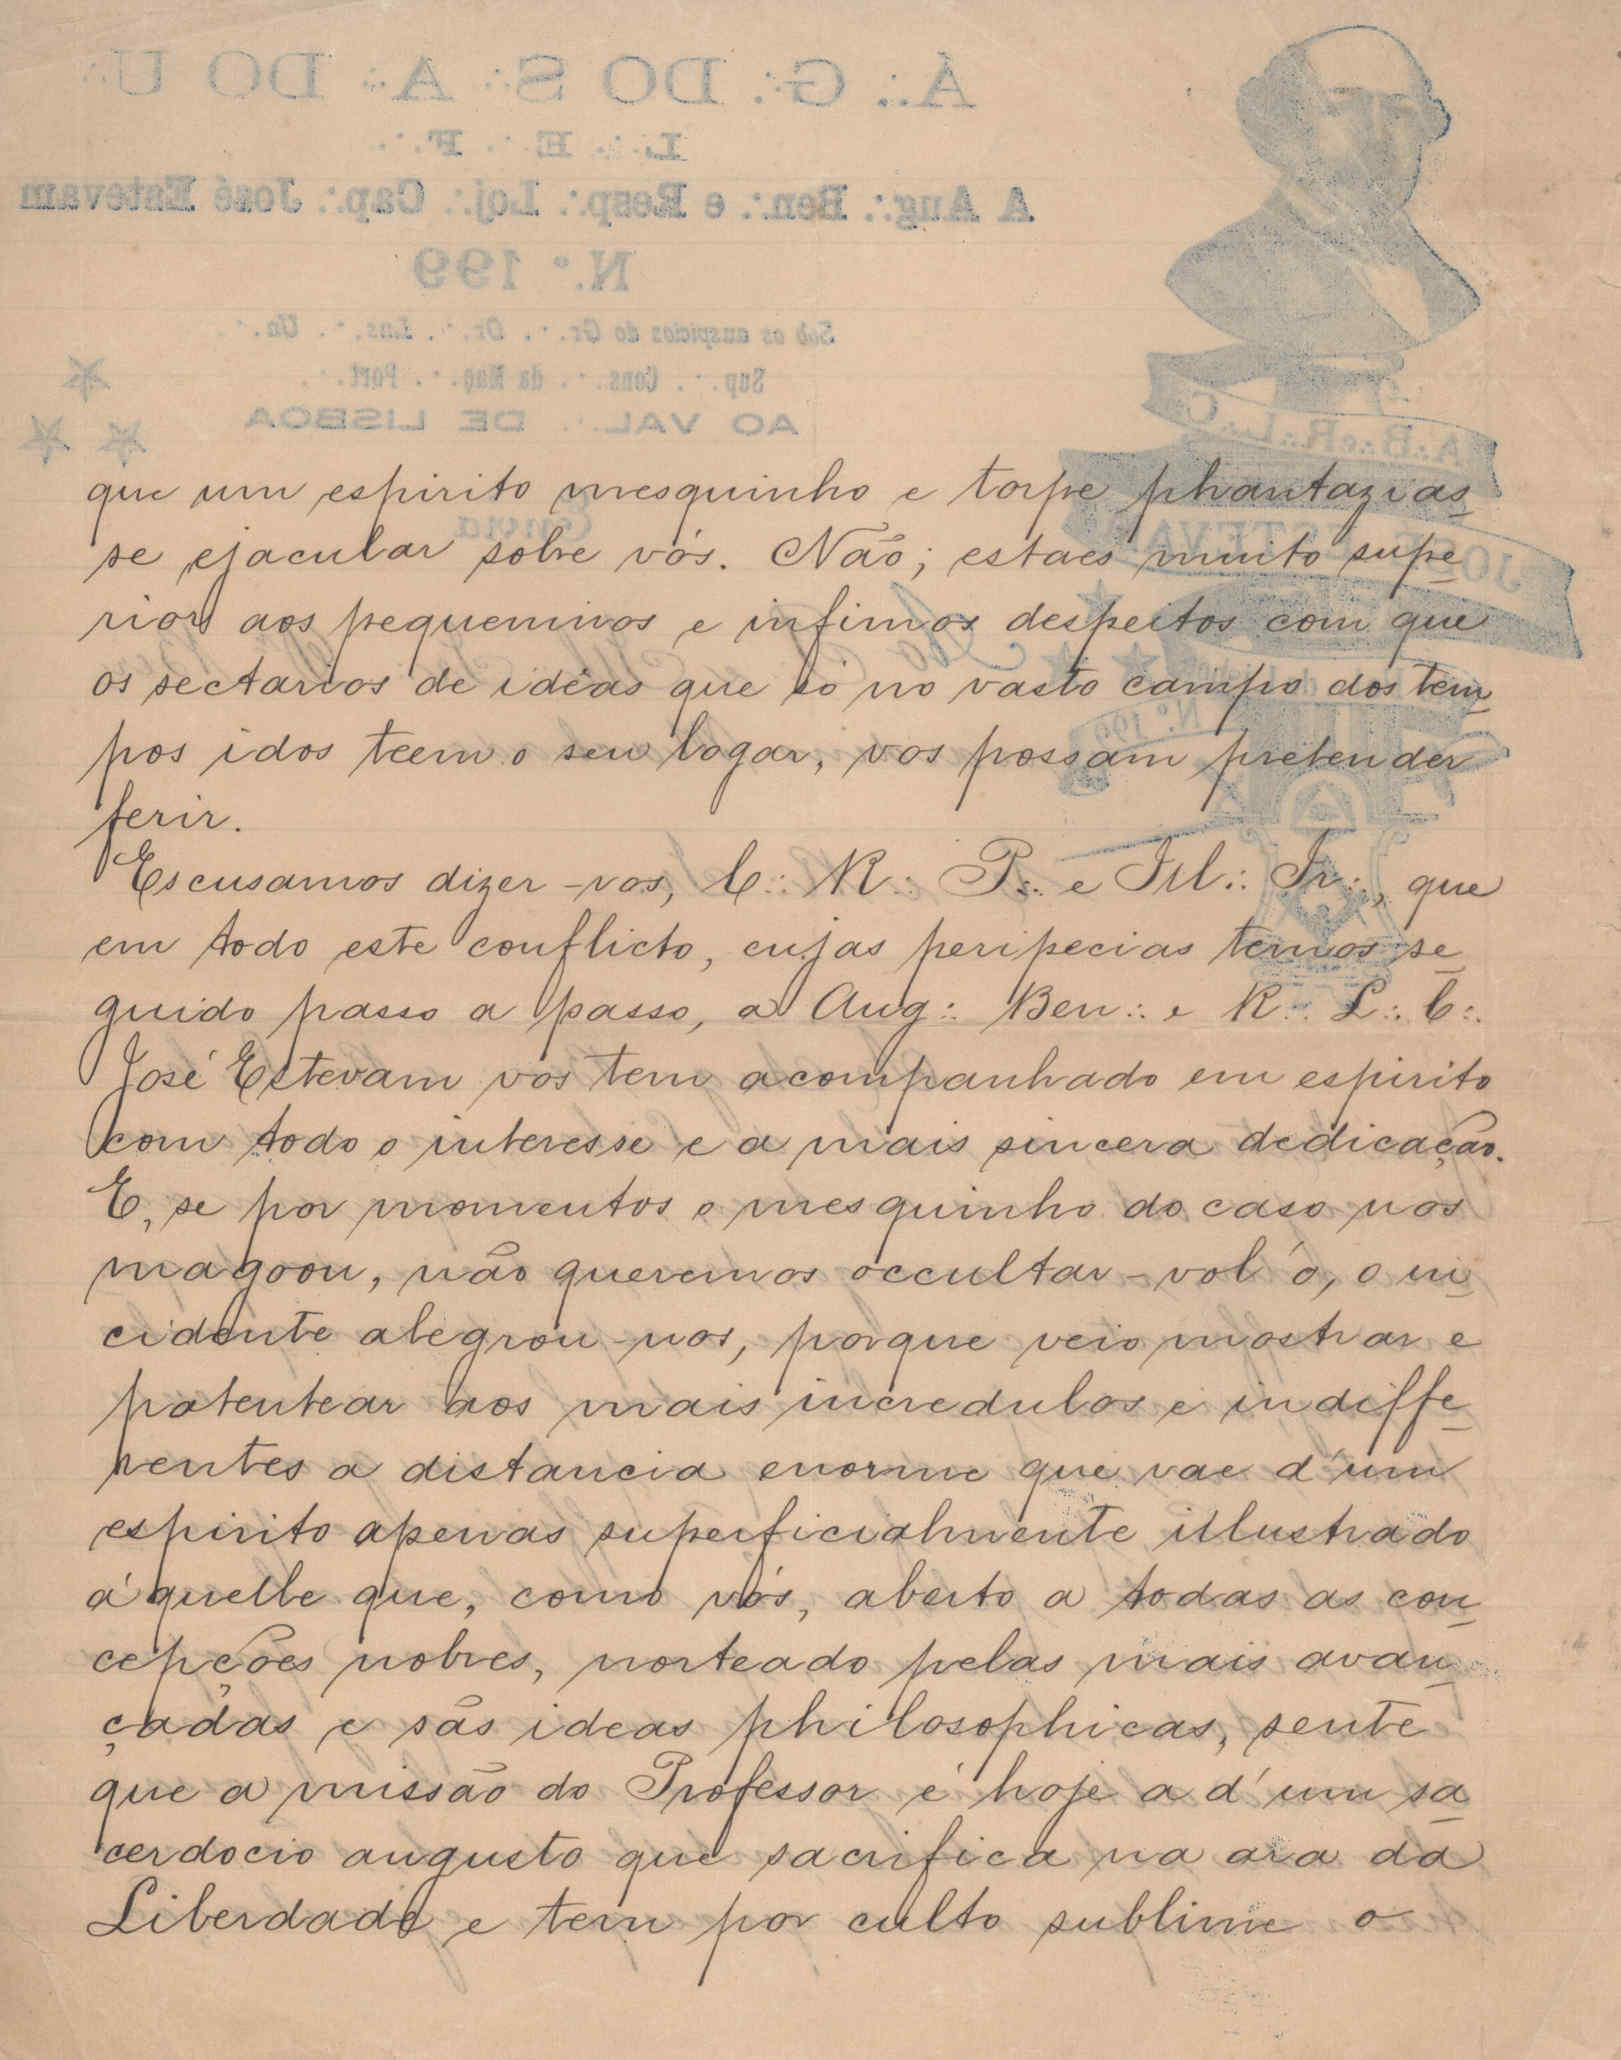 Á∴ G∴ DO S∴ A∴ DO U∴
L∴ E∴ F∴
A Aug∴ Ben∴ e Resp∴ Loj∴ Cap∴ José Estevam
N.º 199
Sob os auspicios do Gr∴ Or∴ Lus∴ Un∴
Sup∴ Cons∴ da Maç∴ Port∴
AO VAL∴ DE LISBOA
A∴B∴eR∴L∴C∴
JOSÉ ESTEVAM
N.º 199
Envia
que um espirito mesquinho e torpe phantazias
se ejacular sobre vós. Não; estaes muito supe
rior aos pequeninos e infimos despeitos com que
os sectarios de idéas que só no vasto campo dos tem
pos idos teem o seu logar, vos possam pretender
ferir.
Escusamos dizer-vos, C∴ R∴ P∴ e Ill∴ Ir∴, que
em todo este conflicto, cujas peripecias temos se
guido passo a passo, a Aug∴ Ben∴ e R∴ L∴ C∴
José Estevam vos tem acompanhado em espirito
com todo o interesse e a mais sincera dedicação.
E, se por momentos o mesquinho do caso nos
magoou, não queremos occultar-vol'o, o in
cidente alegrou-nos, porque veio mostrar e
patentear aos mais incredulos e indiffe
rentes a distancia enorme que vae d'um
espirito apenas superficialmente illustrado
á quelle que, como vós, aberto a todas as con
cepções nobres, norteado pelas mais avan
çadas e sãs ideas philosophicas, sente
que a missão do Professor é hoje a d'um sa
cerdocio augusto que sacrifica na ara da
Liberdade e tem por culto sublime o